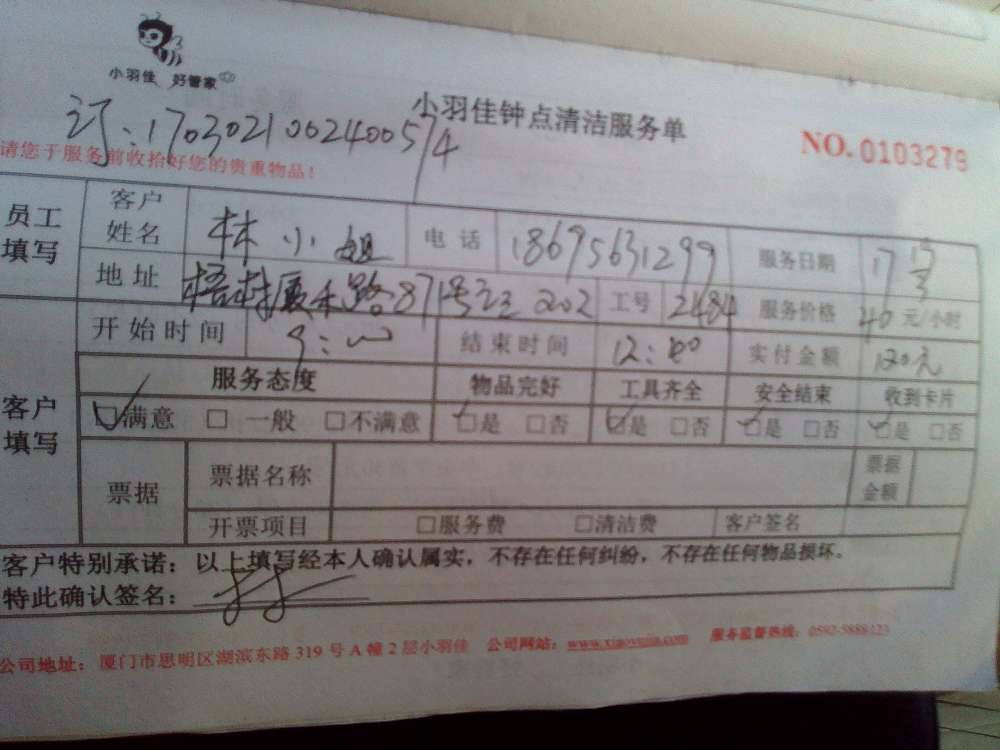 小羽佳 好管家
小羽佳钟点清洁服务单
订:1703021002400574
NO.0103279
请您于服务前收拾好您的贵重物品!
员工填写 客户姓名 林小姐 电话 18695631299 服务日期 17
地址 梧村厦禾路871号 202 工号 2484 服务价格 40元/小时
开始时间 9:00 结束时间 12:00 实付金额 120元
客户填写 服务态度 物品完好 工具齐全 安全结束 收到卡片
☑满意 □一般 □不满意 ☑是 □否 ☑是 □否 ☑是 □否 ☑是 □否
票据 票据名称 票据金额
开票项目 □服务费 □清洁费 客户签名
客户特别承诺:以上填写经本人确认属实,不存在任何纠纷,不存在任何物品损坏。
特此确认签名:
公司地址:厦门市思明区湖滨东路319号A幢2层小羽佳 公司网站: 服务监督热线: